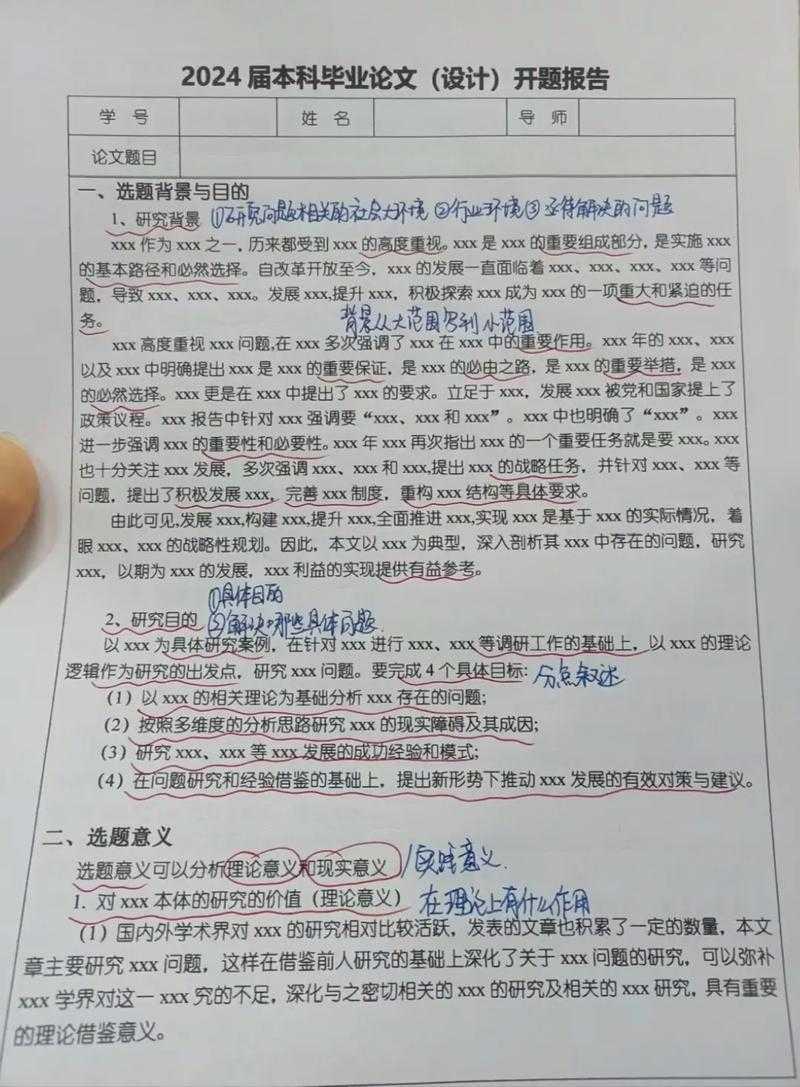 2024 届本科毕业论文（设计）开题报告
学 号 姓 名 导 师
论文题目
一、选题背景与目的
1、研究背景 ①研究问题相关的社会大环境 ②行业环境 ③亟待解决的问题
xxx 作为 xxx 之一，历来都受到 xxx 的高度重视。xxx 是 xxx 的重要组成部分，是实施 xxx
的基本路径和必然选择。自改革开放至今，xxx 的发展一直面临着 xxx、xxx、xxx、xxx 等问
题，导致 xxx、xxx、xxx。发展 xxx,提升 xxx，积极探索 xxx 成为 xxx 的一项重大和紧迫的任
务。
背景从大范围写到小范围
xxx 高度重视 xxx 问题,在 xxx 多次强调了 xxx 在 xxx 中的重要作用。xxx 年的 xxx、xxx
以及 xxx 中明确提出 xxx 是 xxx 的重要保证，是 xxx 的必由之路，是 xxx 的重要举措，是 xxx
的必然选择。xxx 更是在 xxx 中提出了 xxx 的要求。立足于 xxx，发展 xxx 被党和国家提上了
政策议程。xxx 报告中针对 xxx 强调要“xxx、xxx 和 xxx”。xxx 中也明确了“xxx”。xxx
进一步强调 xxx 的重要性和必要性。xxx 年 xxx 再次指出 xxx 的一个重要任务就是要 xxx。xxx
也十分关注 xxx 发展，多次强调 xxx、xxx 和 xxx,提出 xxx 的战略任务，并针对 xxx、xxx 等
问题，提出了积极发展 xxx，完善 xxx 制度，重构 xxx 结构等具体要求。
由此可见,发展 xxx,构建 xxx,提升 xxx,全面推进 xxx,实现 xxx 是基于 xxx 的实际情况，着
眼 xxx、xxx 的战略性规划。因此，本文以 xxx 为典型，深入剖析其 xxx 中存在的问题，研究
xxx，以期为 xxx 的发展，xxx 利益的实现提供有益参考。
①具体目的
2、研究目的 ②解决哪些具体问题
以 xxx 为具体研究案例，在针对 xxx 进行 xxx、xxx 等调研工作的基础上，以 xxx 的理论
逻辑作为研究的出发点，研究 xxx 问题。要完成 4 个具体目标: 分点叙述
(1) 以 xxx 的相关理论为基础分析 xxx 存在的问题;
(2) 按照多维度的分析思路研究 xxx 的现实障碍及其成因;
(3) 研究 xxx、xxx 等 xxx 发展的成功经验和模式;
(4) 在问题研究和经验借鉴的基础上，提出新形势下推动 xxx 发展的有效对策与建议。
二、选题意义
选题意义可以分析理论意义和现实意义 /实践意义.
1. 对 xxx 本体的研究的价值（理论意义） 在理论上有什么作用
(1) 国内外学术界对 xxx 的研究相对比较活跃，发表的文章也积累了一定的数量，本文
章主要研究 xxx 问题，这样在借鉴前人研究的基础上深化了关于 xxx 问题的研究，可以弥补
xxx 学界对这一 xxx 究的不足，深化与之密切相关的 xxx 的研究及相关的 xxx 研究，具有重要
的理论借鉴意义。